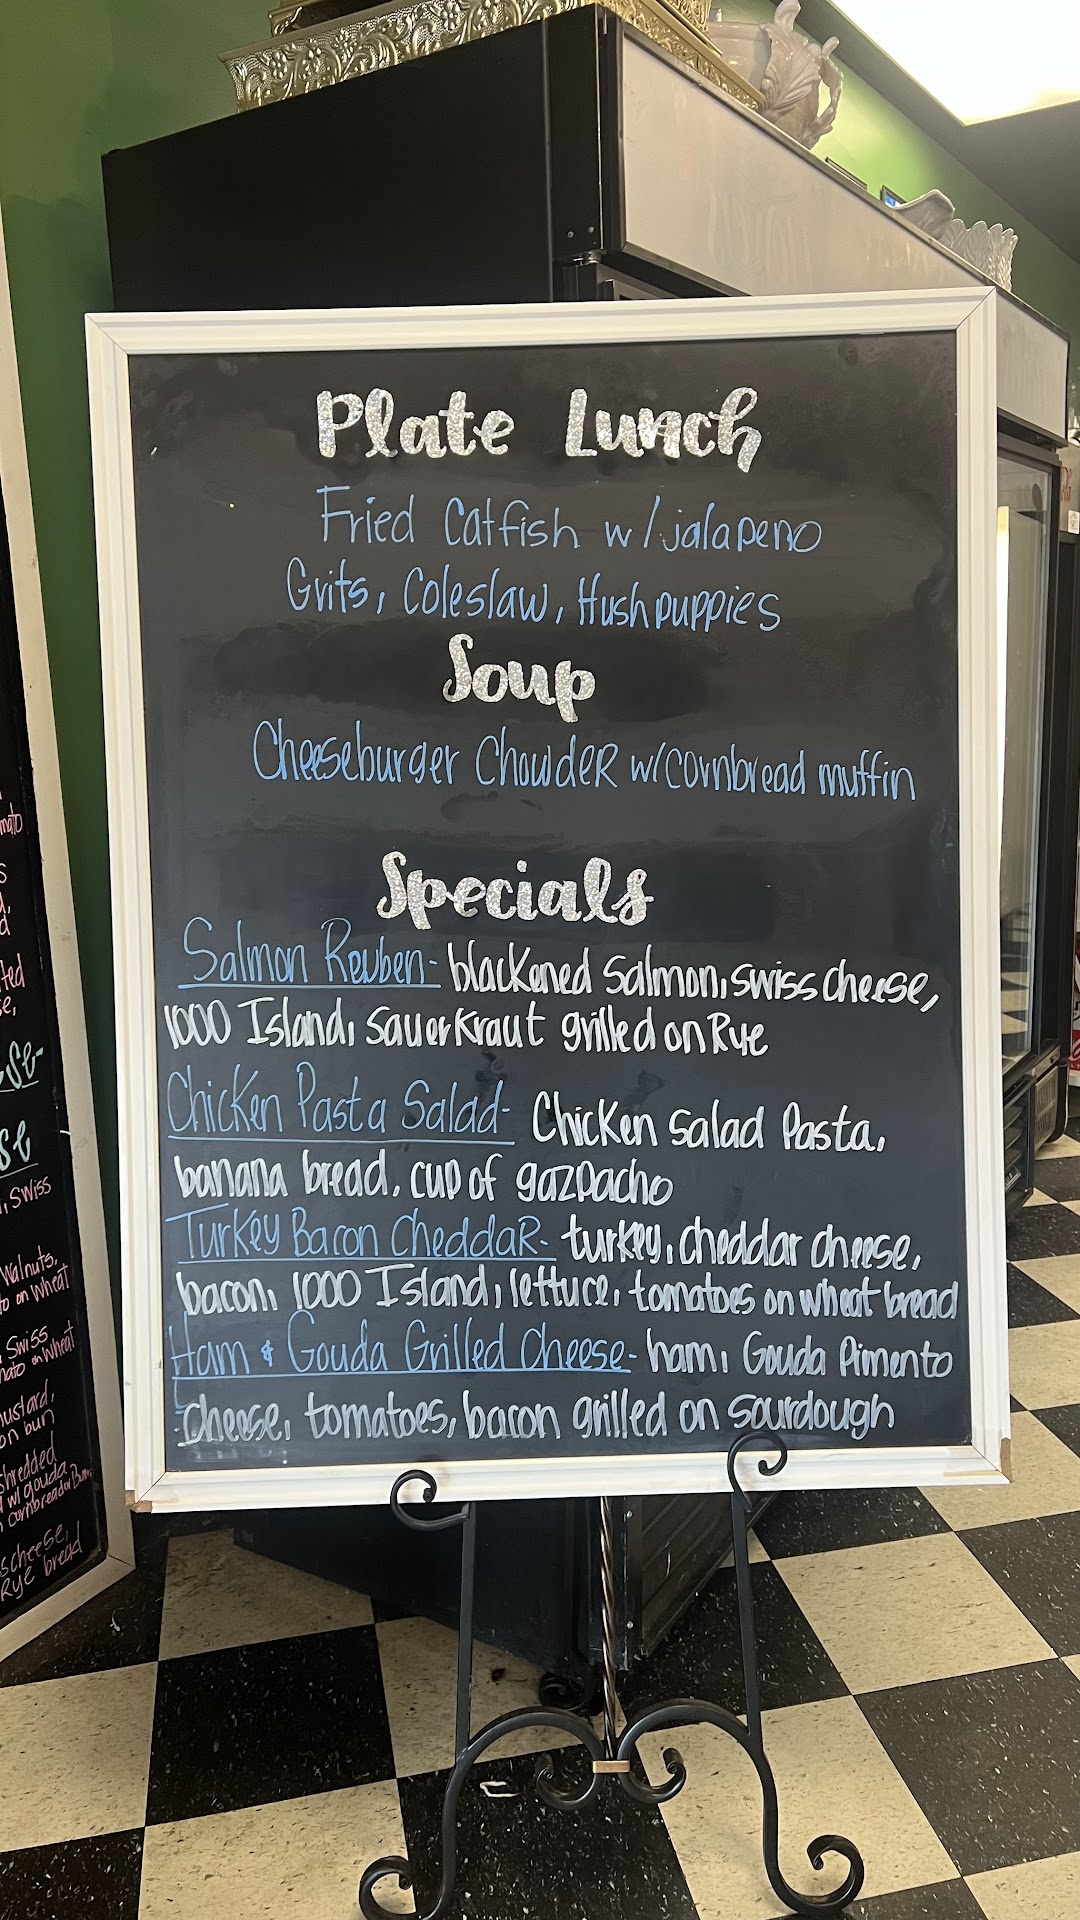 Plate Lunch
Fried Catfish w/jalapeno
Grits, Coleslaw, Hushpuppies
Soup
Cheeseburger ChowdeR w/cornbread muffin
Specials
Salmon Reuben- blackened Salmon, swiss cheese,
1000 Island, SauerKraut grilled on Rye
Chicken Pasta Salad- Chicken Salad Pasta,
banana bread, cup of gazpacho
Turkey Bacon CheddaR- turkey, cheddar cheese,
bacon, 1000 Island, lettuce, tomatoes on wheat bread
Ham & Gouda Grilled Cheese- ham, Gouda Pimento
cheese, tomatoes, bacon grilled on sourdough
, Swiss
Walnuts,
to on Wheat
, Swiss
mato on wheat
mustard,
on bun
shredded
w/ gouda
cornbread or Bun
s cheese,
Rye bread